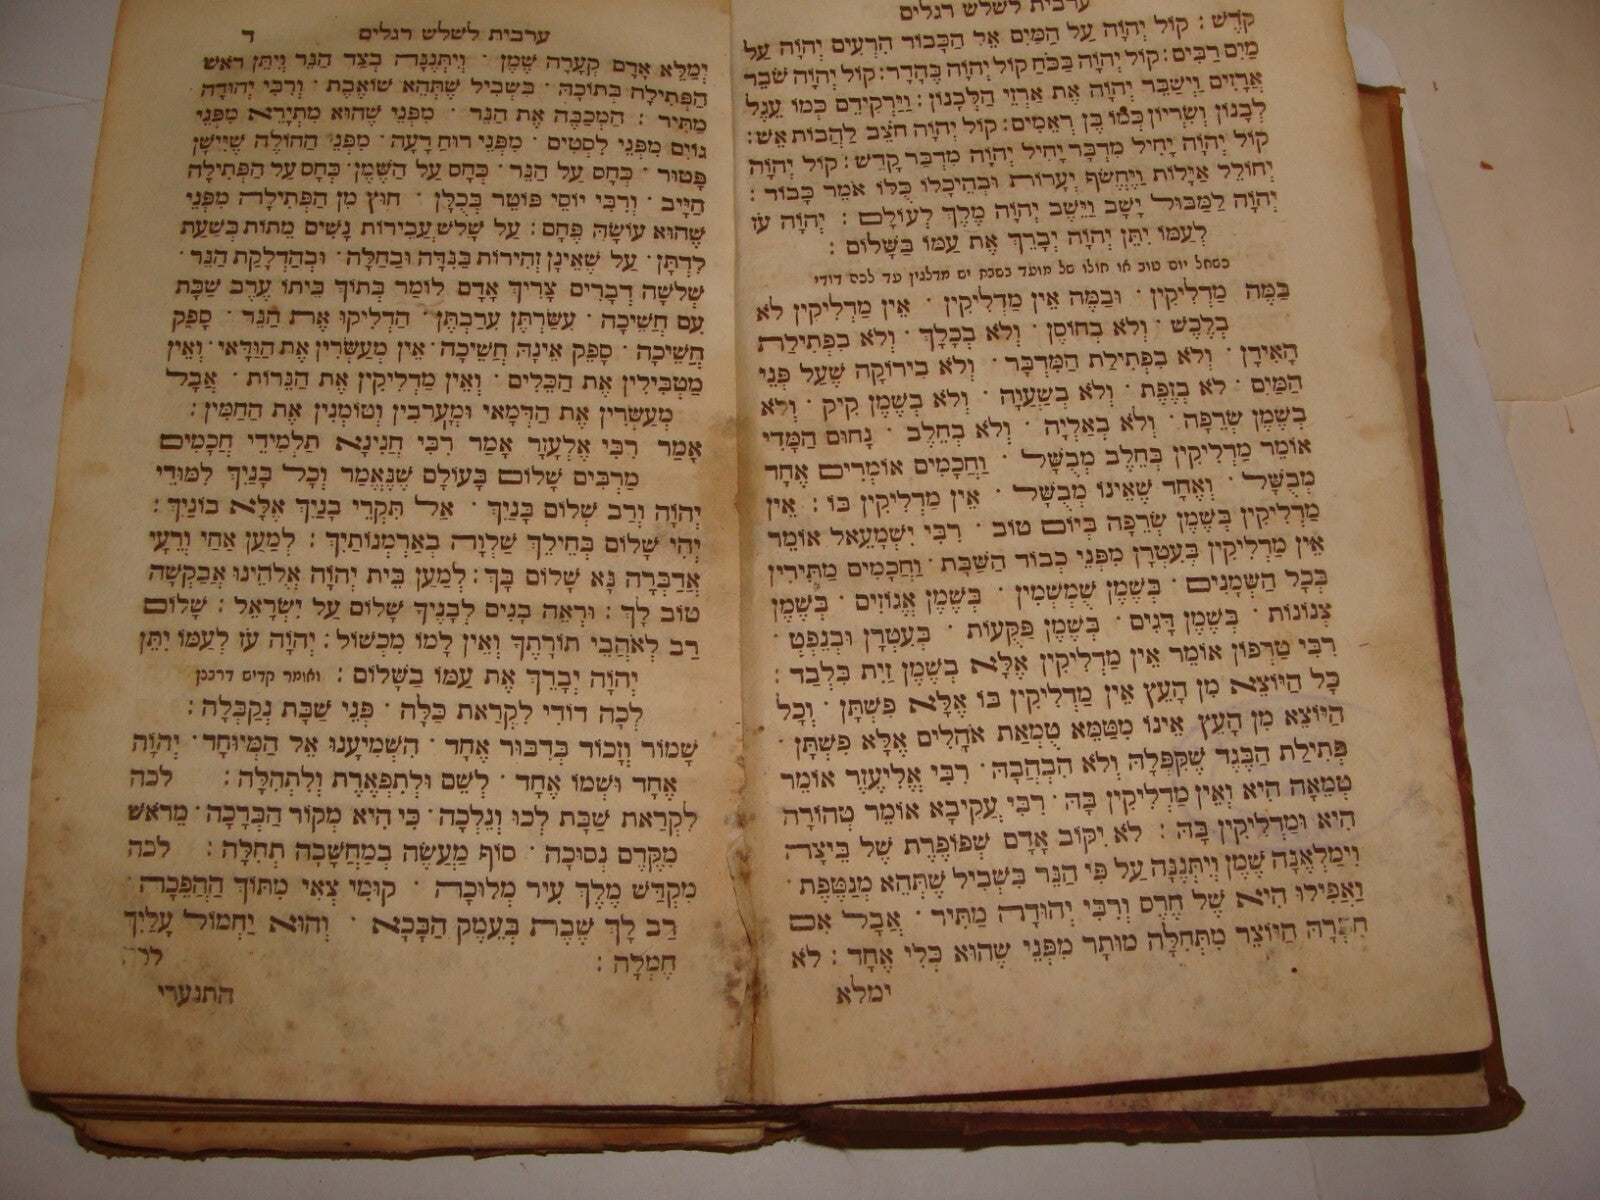 ערבית לשלש רגלים
קֹדֶשׁ : קוֹל יְהוָֹה עַל הַמָּיִם אֵל הַכָּבוֹד הִרְעִים יְהוָֹה עַל
מַיִם רַבִּים : קוֹל יְהוָֹה בַּכֹּחַ קוֹל יְהוָֹה בֶּהָדָר : קוֹל יְהוָֹה שֹׁבֵר
אֲרָזִים וַיְשַׁבֵּר יְהוָֹה אֶת אַרְזֵי הַלְּבָנוֹן : וַיַּרְקִידֵם כְּמוֹ עֵגֶל
לְבָנוֹן וְשִׂרְיוֹן כְּמוֹ בֶן רְאֵמִים : קוֹל יְהוָֹה חֹצֵב לַהֲבוֹת אֵשׁ :
קוֹל יְהוָֹה יָחִיל מִדְבָּר יָחִיל יְהוָֹה מִדְבַּר קָדֵשׁ : קוֹל יְהוָֹה
יְחוֹלֵל אַיָּלוֹת וַיֶּחֱשֹׂף יְעָרוֹת וּבְהֵיכָלוֹ כֻּלּוֹ אֹמֵר כָּבוֹד :
יְהוָֹה לַמַּבּוּל יָשָׁב וַיֵּשֶׁב יְהוָֹה מֶלֶךְ לְעוֹלָם : יְהוָֹה עֹז
לְעַמּוֹ יִתֵּן יְהוָֹה יְבָרֵךְ אֶת עַמּוֹ בַשָּׁלוֹם :
כשחל יום טוב או חולו של מועד בשבת יש מדלגין עד לכה דודי
בַּמֶּה מַדְלִיקִין · וּבַמֶּה אֵין מַדְלִיקִין · אֵין מַדְלִיקִין לֹא
בְלֶכֶשׁ · וְלֹא בְחוֹסֶן · וְלֹא בְכָלָךְ · וְלֹא בִפְתִילַת
הָאִידָן · וְלֹא בִפְתִילַת הַמִּדְבָּר · וְלֹא בִירוֹקָה שֶׁעַל פְּנֵי
הַמַּיִם · לֹא בְזֶפֶת · וְלֹא בְשַׁעֲוָה · וְלֹא בְשֶׁמֶן קִיק · וְלֹא
בְשֶׁמֶן שְׂרֵפָה · וְלֹא בְאַלְיָה · וְלֹא בְחֵלֶב · נָחוּם הַמָּדִי
אוֹמֵר מַדְלִיקִין בְּחֵלֶב מְבֻשָּׁל · וַחֲכָמִים אוֹמְרִים אֶחָד
מְבֻשָּׁל · וְאֶחָד שֶׁאֵינוֹ מְבֻשָּׁל · אֵין מַדְלִיקִין בּוֹ : אֵין
מַדְלִיקִין בְּשֶׁמֶן שְׂרֵפָה בְּיוֹם טוֹב · רִבִּי יִשְׁמָעֵאל אוֹמֵר
אֵין מַדְלִיקִין בְּעִטְרָן מִפְּנֵי כְבוֹד הַשַּׁבָּת · וַחֲכָמִים מַתִּירִין
בְּכָל הַשְּׁמָנִים · בְּשֶׁמֶן שֻׁמְשְׁמִין · בְּשֶׁמֶן אֱגוֹזִים · בְּשֶׁמֶן
צְנוֹנוֹת · בְּשֶׁמֶן דָּגִים · בְּשֶׁמֶן פַּקֻּעוֹת · בְּעִטְרָן וּבְנֵפְטְ ·
רִבִּי טַרְפוֹן אוֹמֵר אֵין מַדְלִיקִין אֶלָּא בְשֶׁמֶן זַיִת בִּלְבַד :
כָּל הַיּוֹצֵא מִן הָעֵץ אֵין מַדְלִיקִין בּוֹ אֶלָּא פִשְׁתָּן · וְכָל
הַיּוֹצֵא מִן הָעֵץ אֵינוֹ מִטַּמֵּא טֻמְאַת אֹהָלִים אֶלָּא פִשְׁתָּן ·
פְּתִילַת הַבֶּגֶד שֶׁקִּפְּלָהּ וְלֹא הִבְהֲבָהּ · רִבִּי אֱלִיעֶזֶר אוֹמֵר
טְמֵאָה הִיא וְאֵין מַדְלִיקִין בָּהּ · רִבִּי עֲקִיבָא אוֹמֵר טְהוֹרָה
הִיא וּמַדְלִיקִין בָּהּ : לֹא יִקּוֹב אָדָם שְׁפוֹפֶרֶת שֶׁל בֵּיצָה
וִימַלְאֶנָּה שֶׁמֶן וְיִתְּנֶנָּה עַל פִּי הַנֵּר בִּשְׁבִיל שֶׁתְּהֵא מְנַטֶּפֶת ·
וַאֲפִילוּ הִיא שֶׁל חֶרֶס וְרִבִּי יְהוּדָה מַתִּיר · אֲבָל אִם
חִבְּרָהּ הַיּוֹצֵר מִתְּחִלָּה מוּתָּר מִפְּנֵי שֶׁהוּא כְּלִי אֶחָד : לֹא
ימלא
ערבית לשלש רגלים ד
יְמַלֵּא אָדָם קְעָרָה שֶׁמֶן · וְיִתְּנֶנָּה בְצַד הַנֵּר וְיִתֵּן רֹאשׁ
הַפְּתִילָה בְתוֹכָהּ · בִּשְׁבִיל שֶׁתְּהֵא שׁוֹאֶבֶת · וְרִבִּי יְהוּדָה
מַתִּיר : הַמְכַבֶּה אֶת הַנֵּר · מִפְּנֵי שֶׁהוּא מִתְיָרֵא מִפְּנֵי
גוֹיִם מִפְּנֵי לִסְטִים · מִפְּנֵי רוּחַ רָעָה · מִפְּנֵי הַחוֹלֶה שֶׁיִּישַׁן
פָּטוּר · כְּחָס עַל הַנֵּר · כְּחָס עַל הַשֶּׁמֶן · כְּחָס עַל הַפְּתִילָה
חַיָּיב · וְרִבִּי יוֹסֵי פּוֹטֵר בְּכֻלָּן · חוּץ מִן הַפְּתִילָה מִפְּנֵי
שֶׁהוּא עוֹשָׂהּ פֶּחָם : עַל שָׁלֹשׁ עֲבֵירוֹת נָשִׁים מֵתוֹת בִּשְׁעַת
לֵדָתָן · עַל שֶׁאֵינָן זְהִירוֹת בַּנִּדָּה וּבַחַלָּה · וּבְהַדְלָקַת הַנֵּר ·
שְׁלֹשָׁה דְבָרִים צָרִיךְ אָדָם לוֹמַר בְּתוֹךְ בֵּיתוֹ עֶרֶב שַׁבָּת
עִם חֲשֵׁיכָה · עִשַּׂרְתֶּן עֵרַבְתֶּן · הַדְלִיקוּ אֶת הַנֵּר · סָפֵק
חֲשֵׁיכָה · סָפֵק אֵינָהּ חֲשֵׁיכָה · אֵין מְעַשְּׂרִין אֶת הַוַּדַּאי · וְאֵין
מַטְבִּילִין אֶת הַכֵּלִים · וְאֵין מַדְלִיקִין אֶת הַנֵּרוֹת · אֲבָל
מְעַשְּׂרִין אֶת הַדְּמַאי וּמְעָרְבִין וְטוֹמְנִין אֶת הַחַמִּין :
אָמַר רִבִּי אֶלְעָזָר אָמַר רִבִּי חֲנִינָא תַּלְמִידֵי חֲכָמִים
מַרְבִּים שָׁלוֹם בָּעוֹלָם שֶׁנֶּאֱמַר וְכָל בָּנַיִךְ לִמּוּדֵי
יְהוָֹה וְרַב שְׁלוֹם בָּנָיִךְ · אַל תִּקְרֵי בָנַיִךְ אֶלָּא בוֹנָיִךְ :
יְהִי שָׁלוֹם בְּחֵילֵךְ שַׁלְוָה בְּאַרְמְנוֹתָיִךְ : לְמַעַן אַחַי וְרֵעָי
אֲדַבְּרָה נָּא שָׁלוֹם בָּךְ : לְמַעַן בֵּית יְהוָֹה אֱלֹהֵינוּ אֲבַקְשָׁה
טוֹב לָךְ : וּרְאֵה בָנִים לְבָנֶיךָ שָׁלוֹם עַל יִשְׂרָאֵל : שָׁלוֹם
רַב לְאֹהֲבֵי תוֹרָתֶךָ וְאֵין לָמוֹ מִכְשׁוֹל : יְהוָֹה עֹז לְעַמּוֹ יִתֵּן
יְהוָֹה יְבָרֵךְ אֶת עַמּוֹ בַשָּׁלוֹם : ואומר קדיש דרבנן
לְכָה דוֹדִי לִקְרַאת כַּלָּה · פְּנֵי שַׁבָּת נְקַבְּלָה :
שָׁמוֹר וְזָכוֹר בְּדִבּוּר אֶחָד · הִשְׁמִיעָנוּ אֵל הַמְּיוּחָד · יְהוָֹה
אֶחָד וּשְׁמוֹ אֶחָד · לְשֵׁם וּלְתִפְאֶרֶת וְלִתְהִלָּה : לכה
לִקְרַאת שַׁבָּת לְכוּ וְנֵלְכָה · כִּי הִיא מְקוֹר הַבְּרָכָה · מֵרֹאשׁ
מִקֶּדֶם נְסוּכָה · סוֹף מַעֲשֶׂה בְמַחֲשָׁבָה תְּחִלָּה : לכה
מִקְדַּשׁ מֶלֶךְ עִיר מְלוּכָה · קוּמִי צְאִי מִתּוֹךְ הַהֲפֵכָה ·
רַב לָךְ שֶׁבֶת בְּעֵמֶק הַבָּכָא · וְהוּא יַחְמוֹל עָלַיִךְ
חֶמְלָה :
התנערי